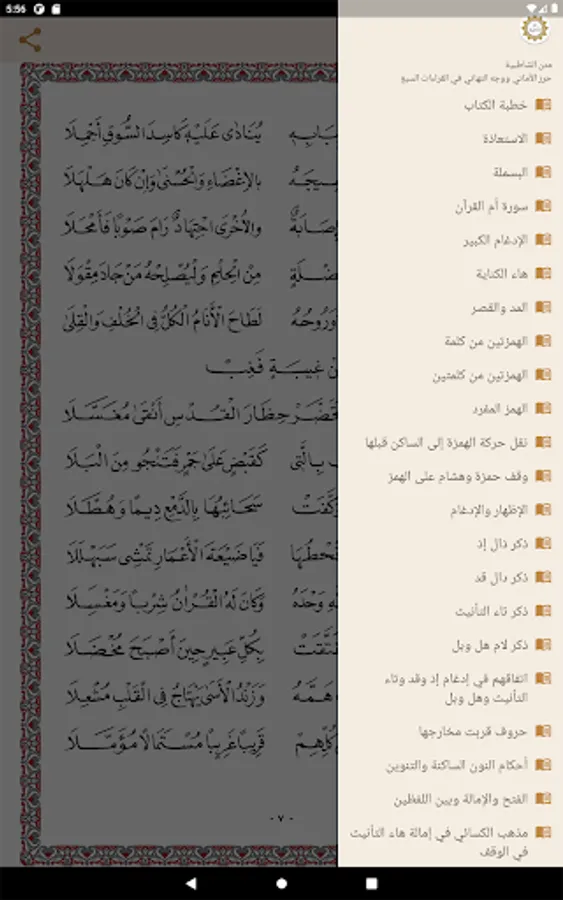 5:56
متن الشاطبية
حرز الأماني ووجه التهاني في القراءات السبع
خطبة الكتاب
الاستعاذة
البسملة
سورة أم القرآن
الإدغام الكبير
هاء الكناية
المد والقصر
الهمزتين من كلمة
الهمزتين من كلمتين
الهمز المفرد
نقل حركة الهمزة إلى الساكن قبلها
وقف حمزة وهشام على الهمز
الإظهار والإدغام
ذكر ذال إذ
ذكر دال قد
ذكر تاء التأنيث
ذكر لام هل وبل
اتفاقهم في إدغام إذ وقد وتاء
التأنيث وهل وبل
حروف قربت مخارجها
أحكام النون الساكنة والتنوين
الفتح والإمالة وبين اللفظين
مذهب الكسائي في إمالة هاء التأنيث
في الوقف
يُنَادَى عَلَيْهِ كَاسِدَ السُّوقِ أَجْمِلَا
بِالاِغْضَاءِ وَالْحُسْنَى وَإِنْ كَانَ هَلْهَلَا
وَالُاخْرَى اجْتِهَادٌ رَامَ صَوْبًا فَأَمْحَلَا
مِنَ الْحِلْمِ وَلْيُصْلِحْهُ مَنْ جَادَ مِقْوَلَا
وَرُوحُهُ لَطَاحَ الْأَنَامُ الْكُلُّ فِي الْخُلْفِ وَالْقِلَى
غِيبَةٍ فَغِبْ
حِظَارَ الْقُدْسِ أَنْقَى مُغَسَّلَا
بِالَّتِي كَقَبْضٍ عَلَى جَمْرٍ فَتَنْجُو مِنَ الْبَلَا
سَحَائِبُهَا بِالدَّمْعِ دِيمًا وَهُطَّلَا
فَيَا ضَيْعَةَ الْأَعْمَارِ تَمْشِي سَبَهْلَلَا
وَحْدَهُ وَكَانَ لَهُ الْقُرْآنُ شِرْبًا وَمَغْسِلَا
بِكُلِّ عَبِيرٍ حِينَ أَصْبَحَ مُخْضَلَا
هَمُّهُ وَزَنْدُ الْأَسَى يَهْتَاجُ فِي الْقَلْبِ مُشْعِلَا
قَرِيبًا غَرِيبًا مُسْتَمَالًا مُؤَمَّلَا
- ٧ -